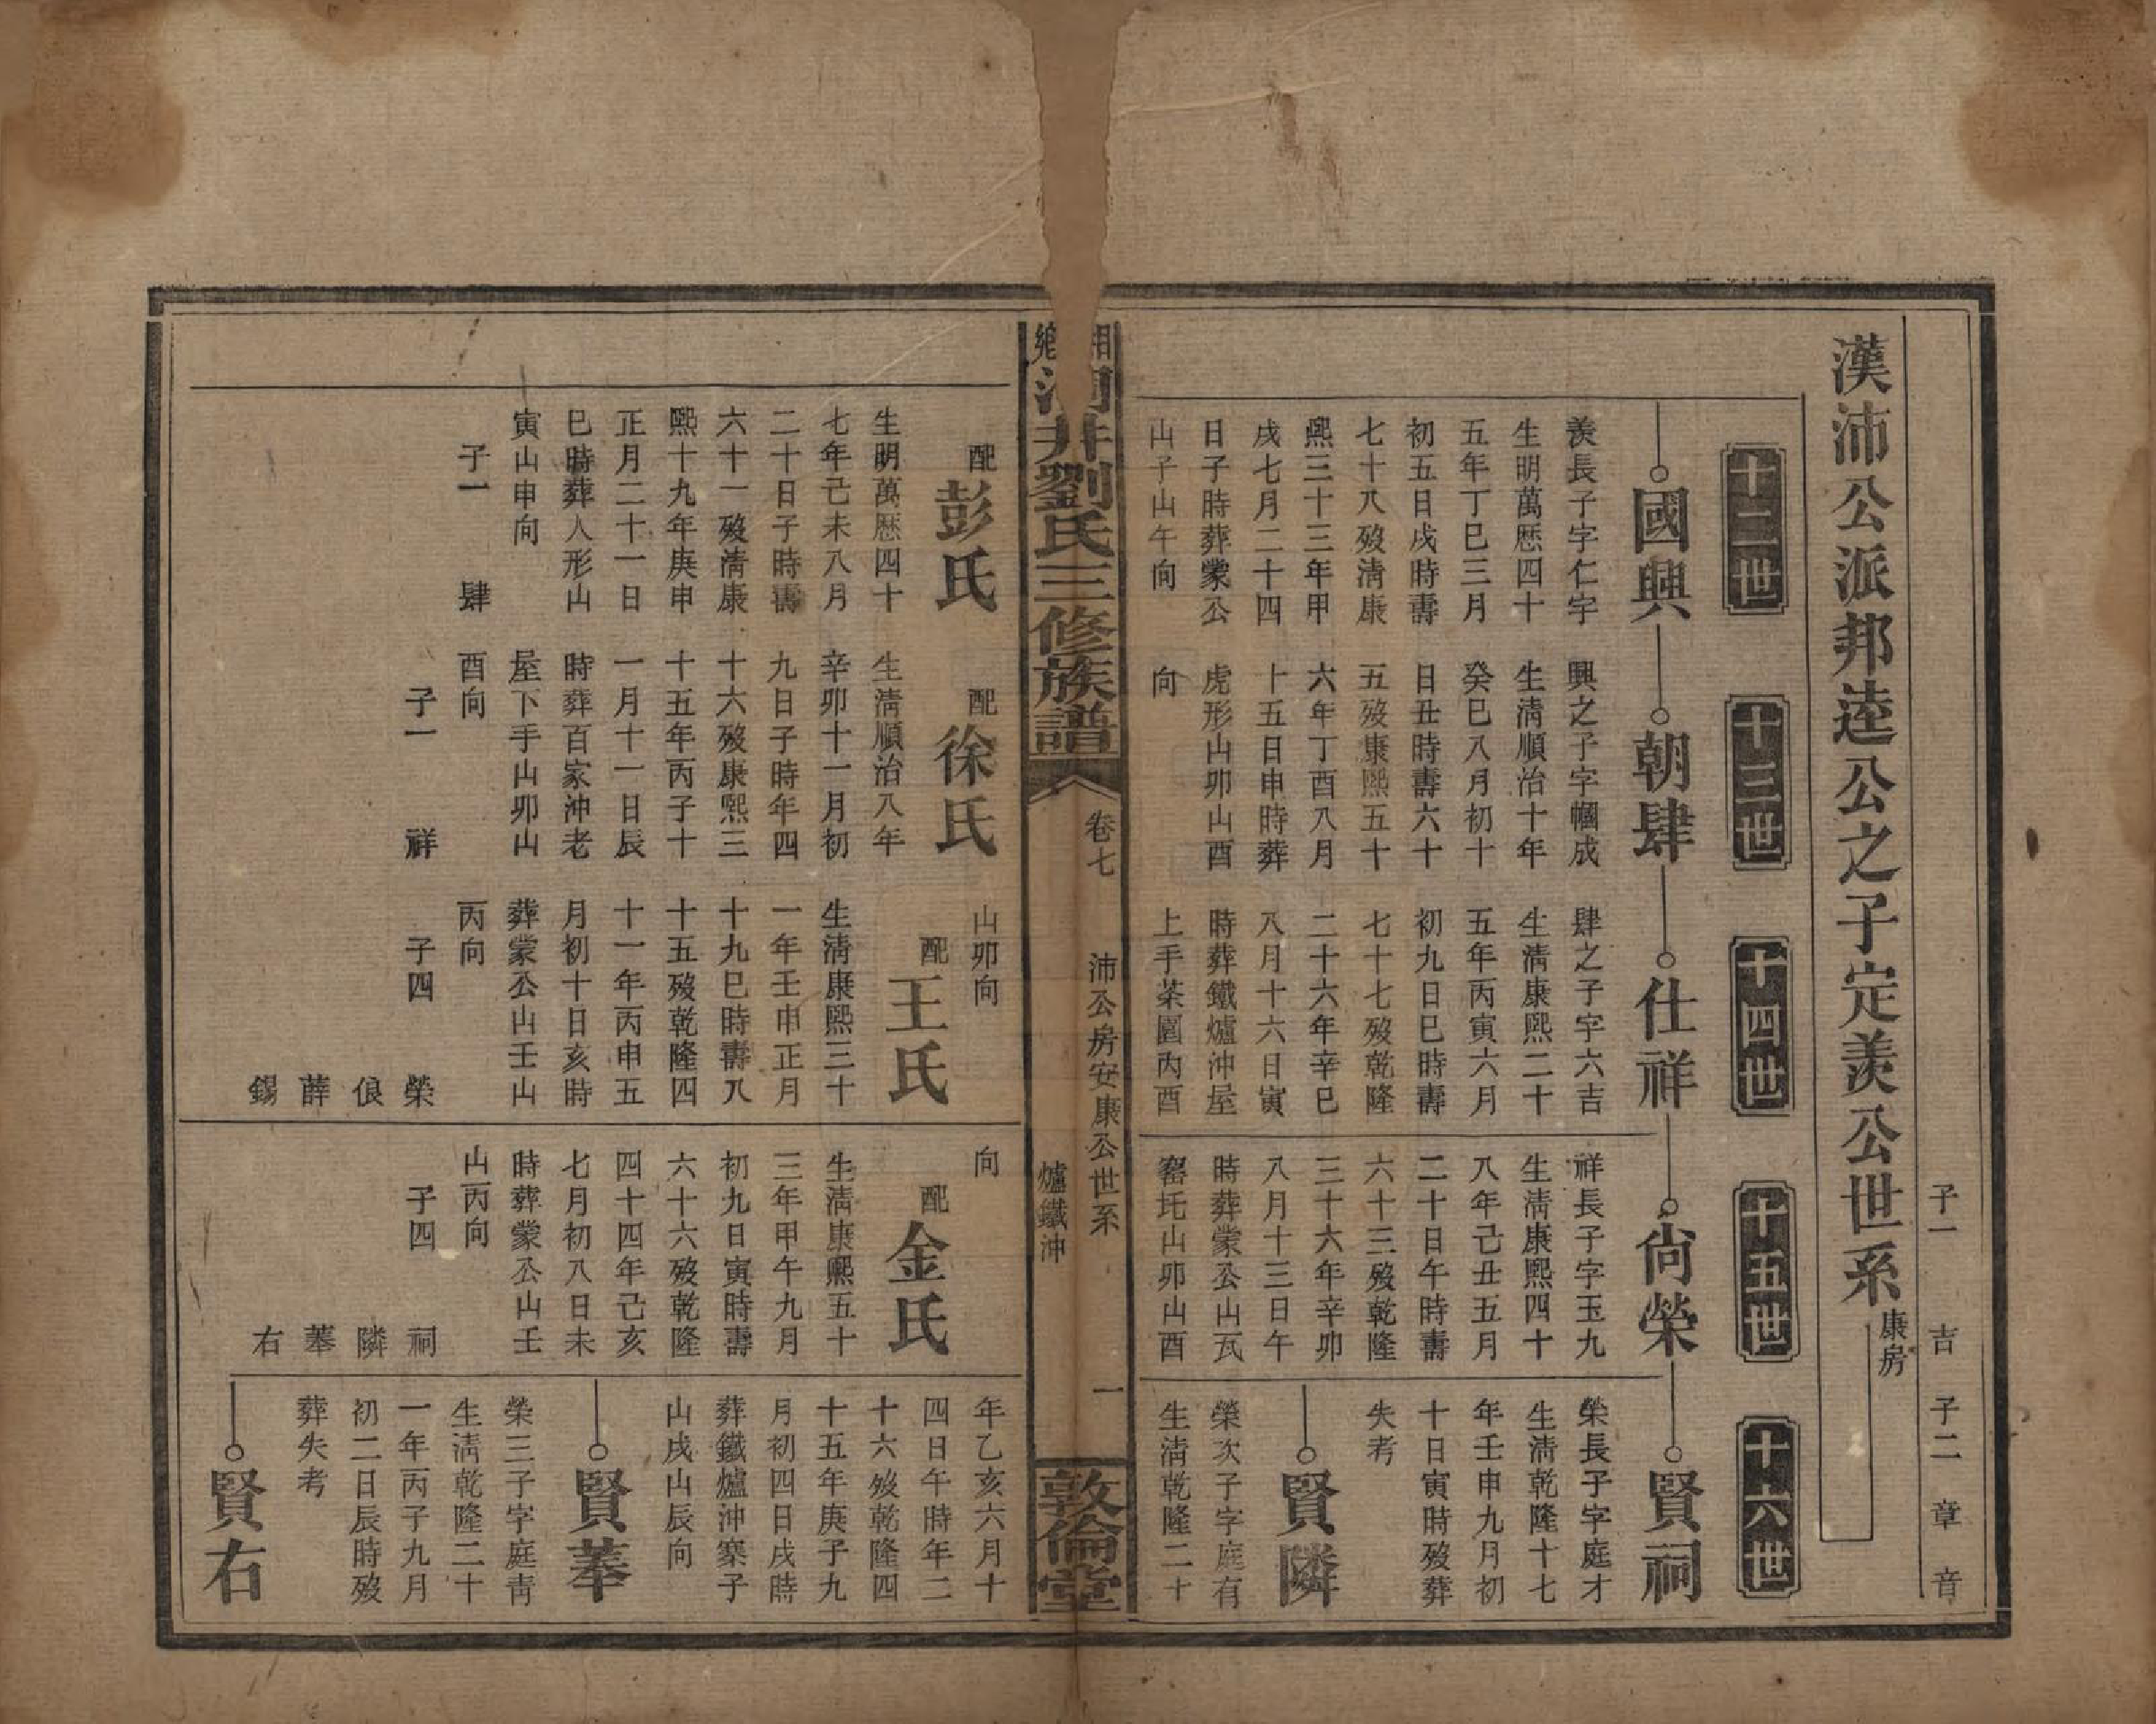 子一 吉 子二 章 音
漢沛公派邦逵公之子定羨公世系 康房
十二世
十三世
十四世
十五世
十六世
國興
羨長子字仁字
生明萬歷四十
五年丁巳三月
初五日戌時壽
七十八歿清康
熙三十三年甲
戌七月二十四
日子時葬蒙公
山子山午向
朝肆
興之子字幗成
生清順治十年
癸巳八月初十
日丑時壽六十
五歿康熙五十
六年丁酉八月
十五日申時葬
虎形山卯山酉
向
仕祥
肆之子字六吉
生清康熙二十
五年丙寅六月
初九日巳時壽
七十七歿乾隆
二十六年辛巳
八月十六日寅
時葬鐵爐沖屋
上手茶園內酉
尙榮
祥長子字玉九
生清康熙四十
八年己丑五月
二十日午時壽
六十三歿乾隆
三十六年辛卯
八月十三日午
時葬蒙公山瓦
窰圫山卯山酉
賢祠
榮長子字庭才
生清乾隆十七
年壬申九月初
十日寅時歿葬
失考
賢隣
榮次子字庭有
生清乾隆二十
鄉 洞井劉氏三修族譜
卷七 沛公房安康公世系 爐鐵沖 一
敦倫堂
配彭氏
生明萬歷四十
七年己未八月
二十日子時壽
六十一歿清康
熙十九年庚申
正月二十一日
巳時葬人形山
寅山申向
子一 肆
配徐氏
生清順治八年
辛卯十一月初
九日子時年四
十六歿康熙三
十五年丙子十
一月十一日辰
時葬百家沖老
屋下手山卯山
酉向
子一 祥
山卯向
配王氏
生清康熙三十
一年壬申正月
十九巳時壽八
十五歿乾隆四
十一年丙申五
月初十日亥時
葬蒙公山壬山
丙向
子四 榮 俍 薛 錫
向
配金氏
生清康熙五十
三年甲午九月
初九日寅時壽
六十六歿乾隆
四十四年己亥
七月初八日未
時葬蒙公山壬
山丙向
子四 祠 隣 䓁 右
年乙亥六月十
四日午時年二
十六歿乾隆四
十五年庚子九
月初四日戌時
葬鐵爐沖寨子
山戌山辰向
賢䓁
榮三子字庭靑
生清乾隆二十
一年丙子九月
初二日辰時歿
葬失考
賢右